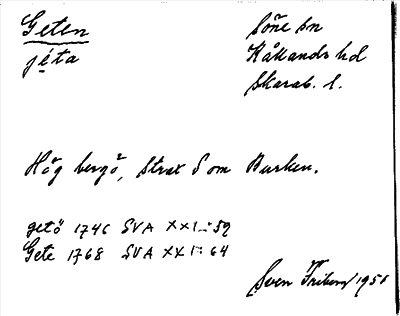 Geten
jeta
Söne sn
Kållands hd
Skarab. l.
Hög bergö, strax S om Burken.
getö 1746 SVA XXI:59
Gete 1768 SVA XXI:64
Sven Friberg 195